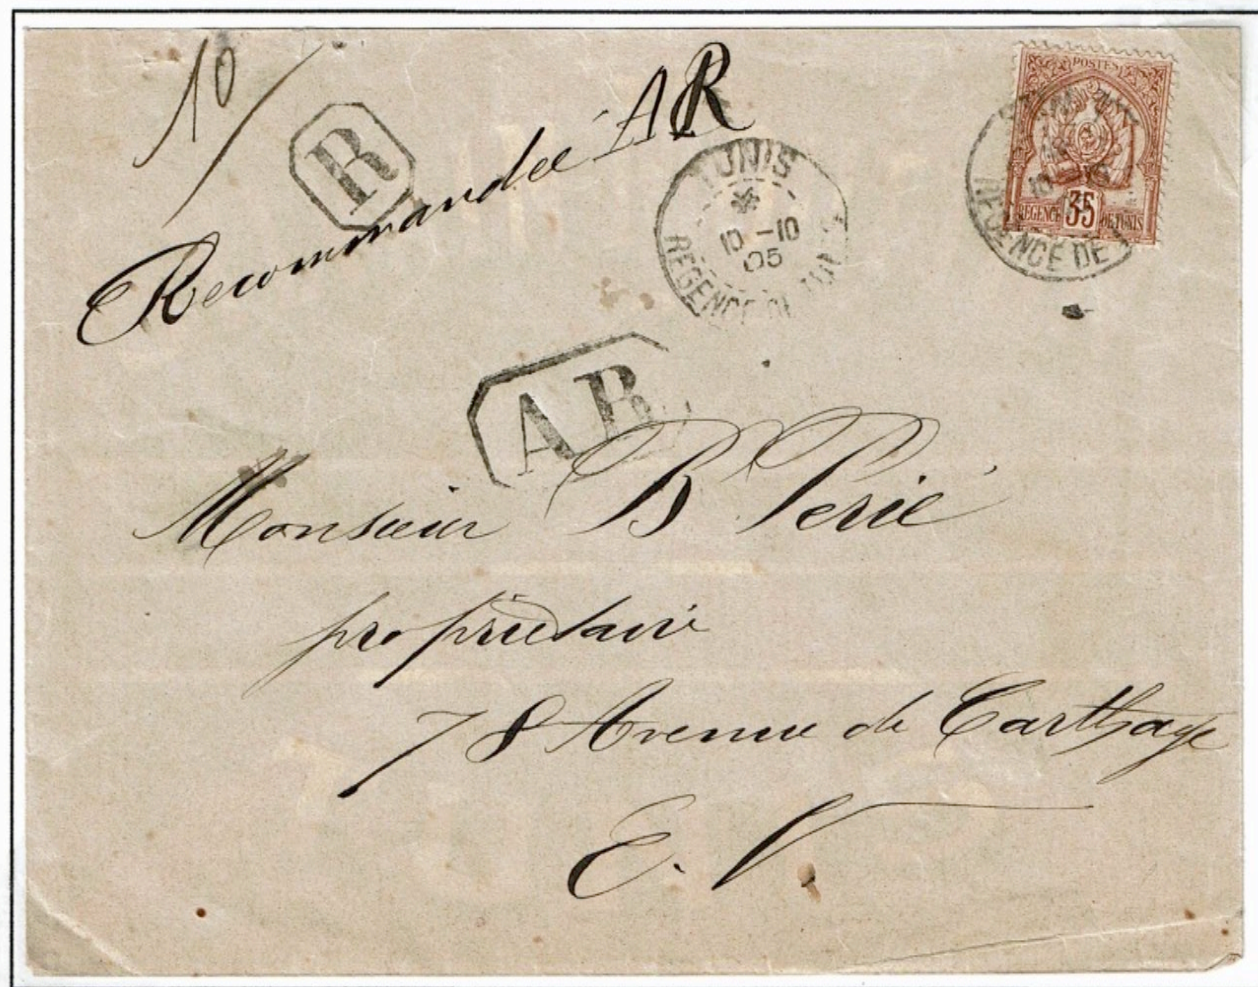 10
R
Recommandée AR
TUNIS
10 -10
05
REGENCE DE TUNIS
POSTES
REGENCE 35 DE TUNIS
REGENCE DE
AR
Monsieur B Perié
propriétaire
78 Avenue de Carthage
E. V.